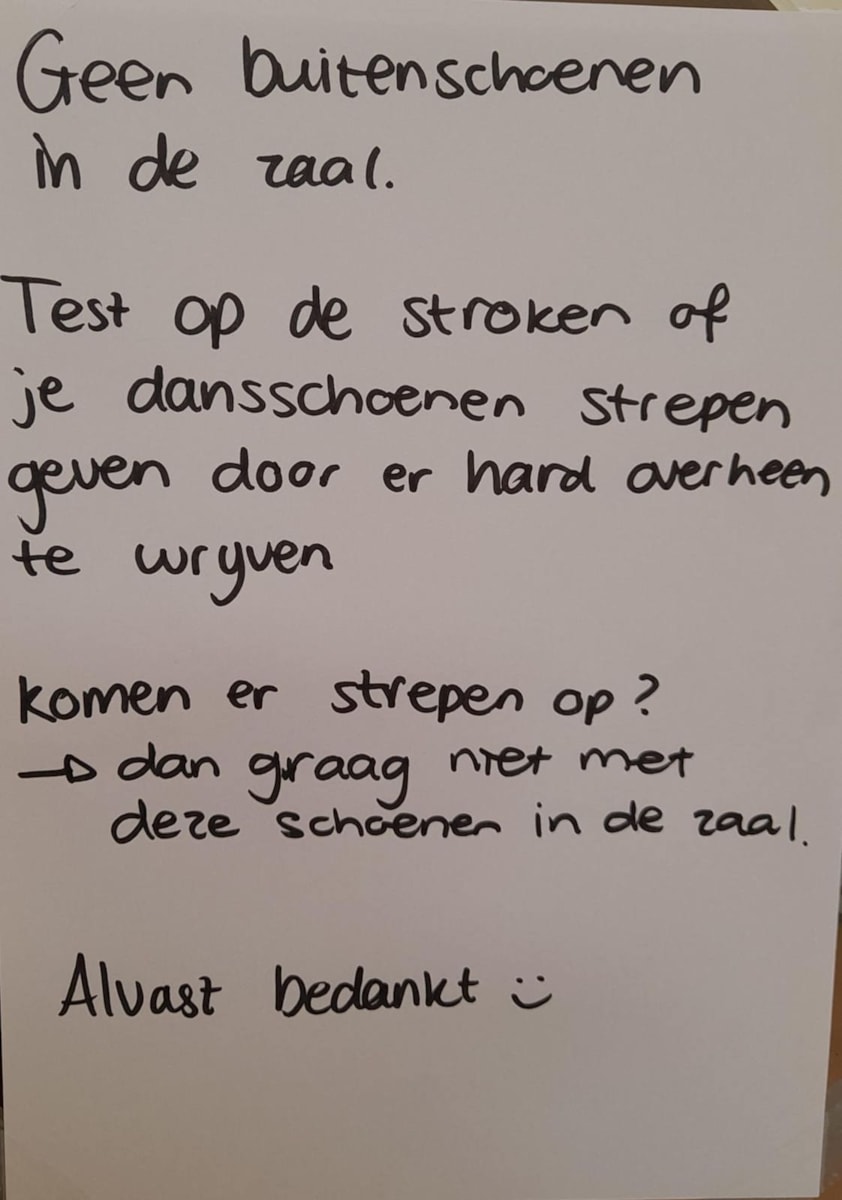 Geen buitenschoenen
in de zaal.
Test op de stroken of
je dansschoenen strepen
geven door er hard overheen
te wryven
komen er strepen op?
→ dan graag niet met
deze schoenen in de zaal.
Alvast bedankt :)